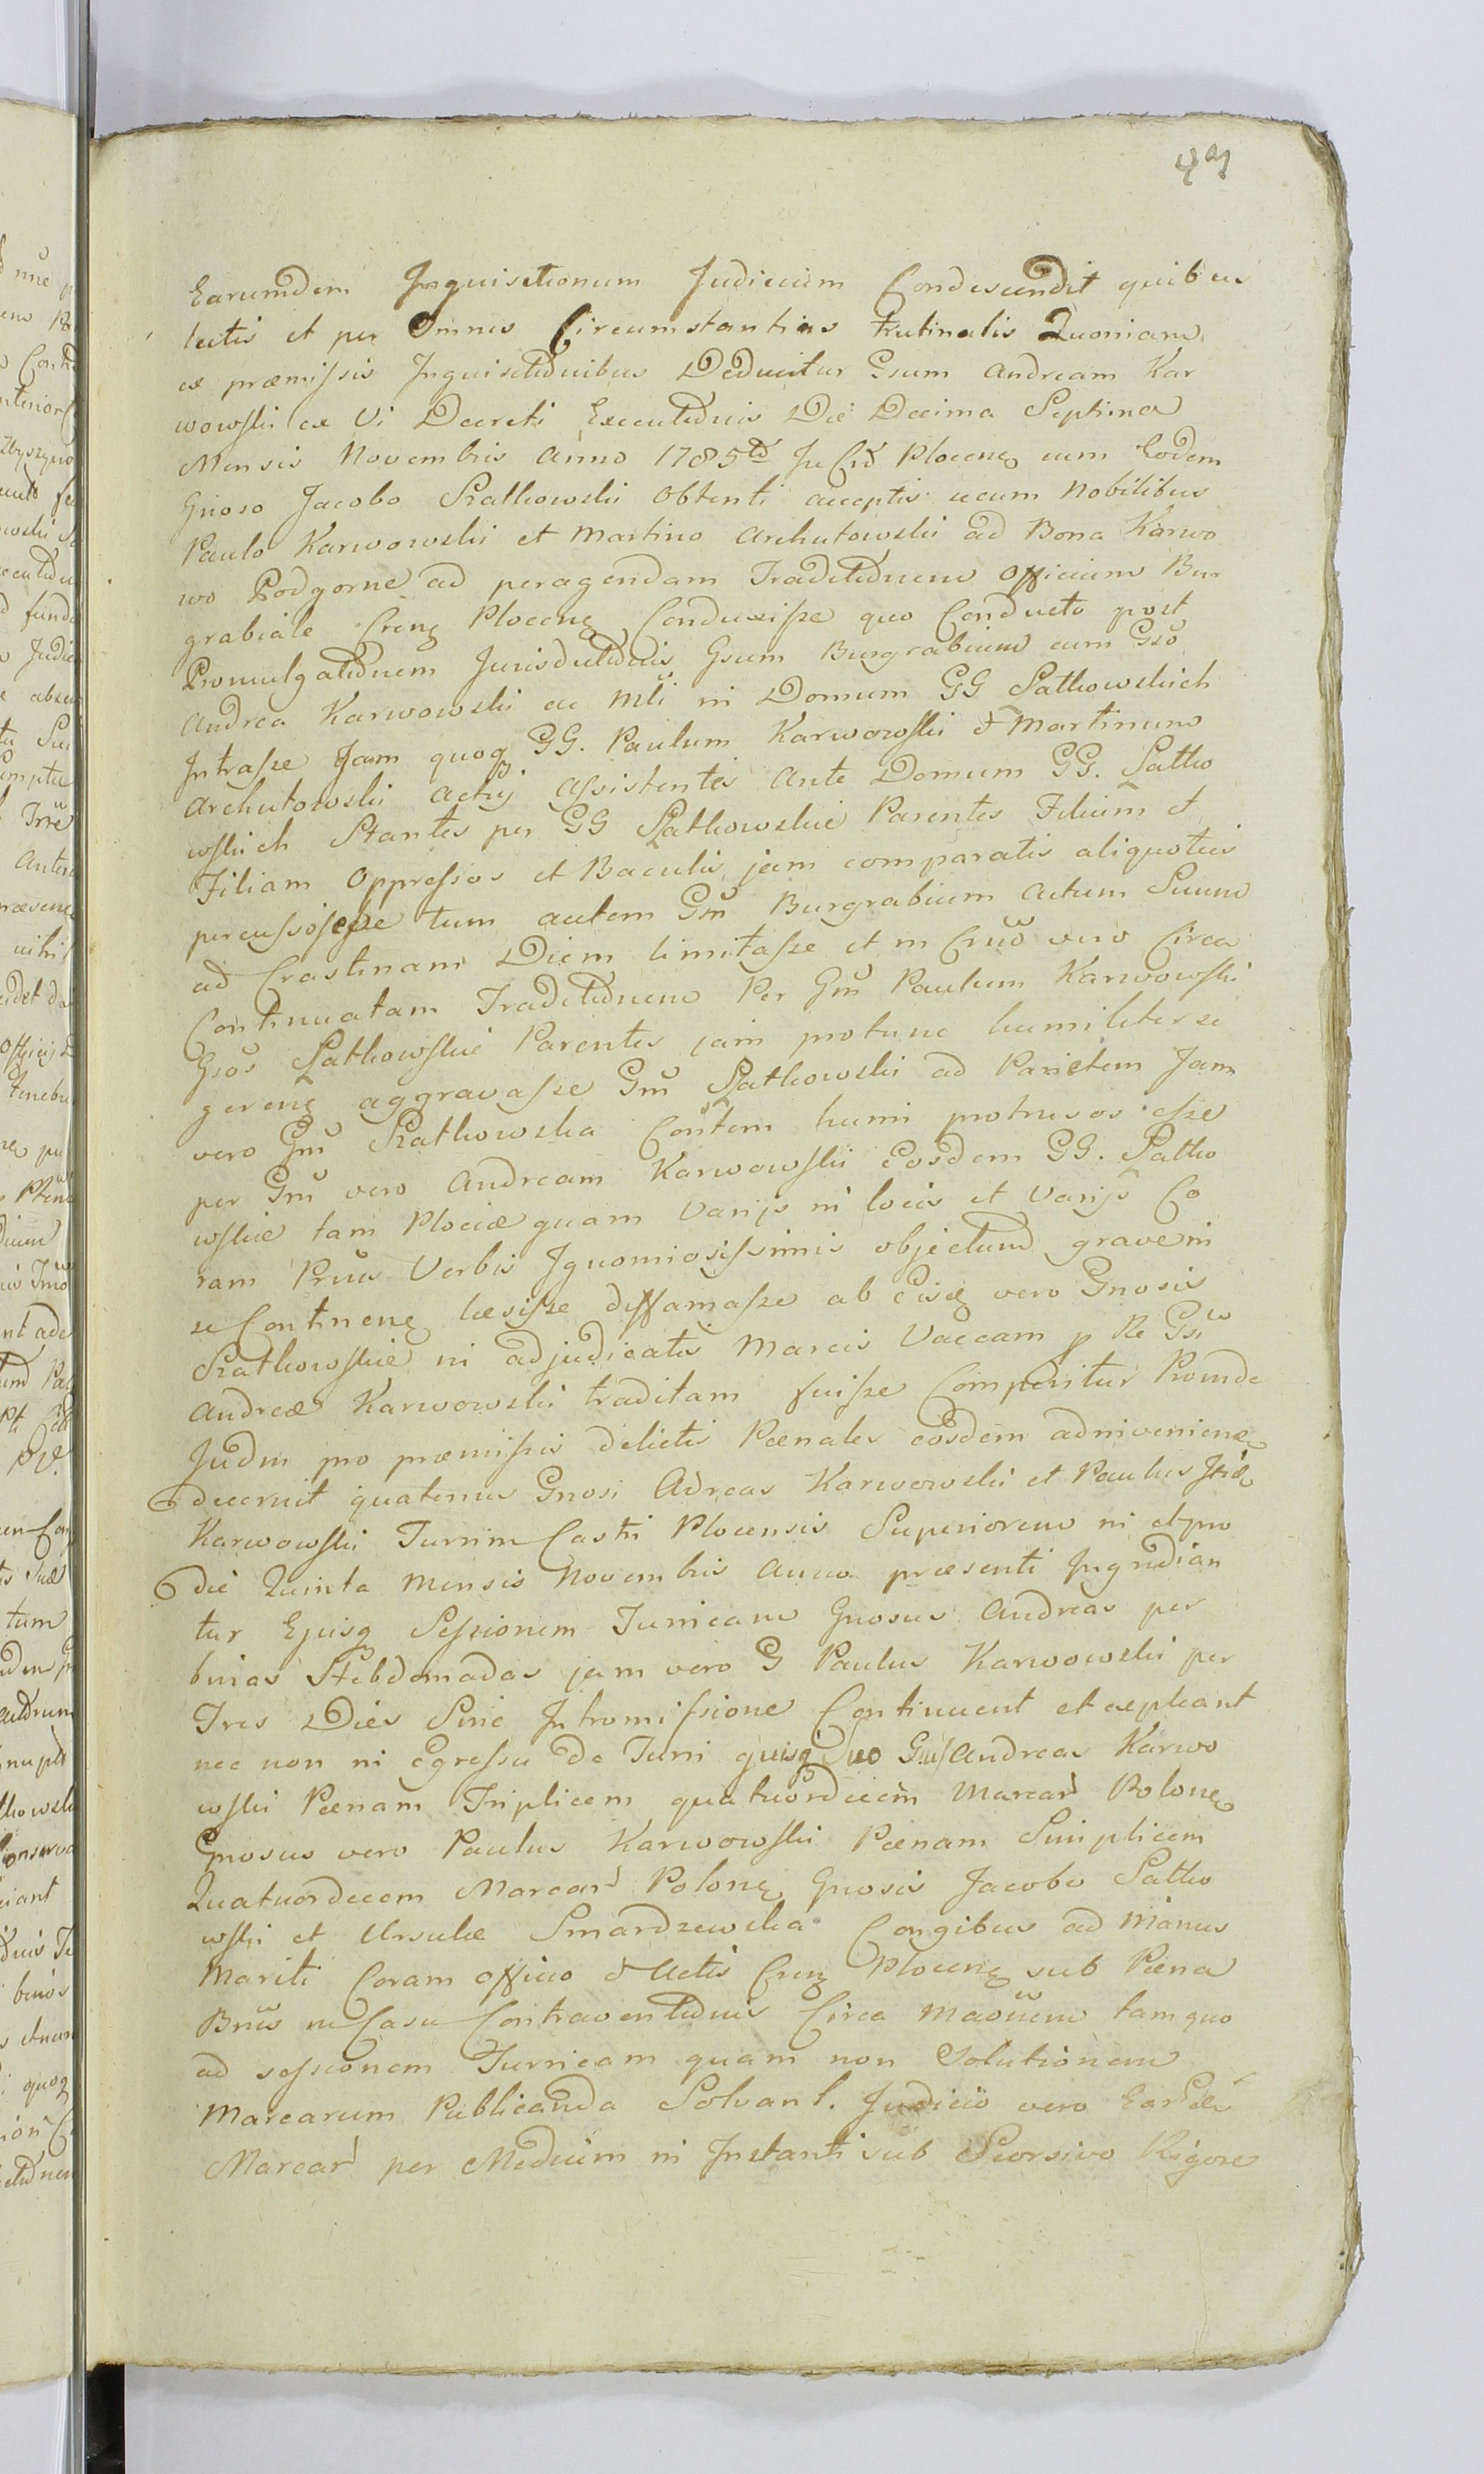 49
Earumdem Inquisitionum Judicium Condescendit quibus
lectis et per Omnes Circumstantias trutinatis Quoniam
ex præmissis Inquisitionibus Deducitur Gsum Andream Kar
wowski ex Vi Decreti Executionis Die Decima Septima
Mensis Novembris Anno 1785to In Crd Plocens cum Eodem
Gnoso Jacobo Szatkowski Obtenti acceptis secum Nobilibus
Paulo Karwowski et Martino Archutowski ad Bona Karwo
wo Podgorne ad peragendam Traditionem Officium Bur
grabiale Crens Plocens Conduxisse quo Conducto post
Promulgationem Jurisdictionis Gsum Burgrabium cum Gso
Andrea Karwowski ac Mli in Domum GG Satkowskich
Intrasse Jam quoq GG. Paulum Karwowski & Martinum
Archutowski actui assistentes Ante Domum GG. Satko
wskich Stantes per GG Szatkowskie Parentes Filium et
Filiam Oppressos et Baculis jam comparatis aliquoties
percussos esse tum autem Gm Burgrabium actum Suum
ad Crastinam Diem limitasse et in Crno vero Circa
Continuatam Traditionem Per Gm Paulum Karwowski
Gsos Szatkowskie Parentes jam protunc humiliter se
gerens aggravasse Gm Szatkowski ad Parietem Jam
vero Gm Szatkowska Contem humi protrusos esse
per Gm vero Andream Karwowski Eosdem GG. Szatko
wskie tam Plociæ quam Varijs in locis et Varijs Co
ram Prnis Verbis Ignomiosissimis objectum gravem in
se Continens læsisse diffamasse ab Eisq vero Gnosis
Szatkowskie in adjudicatis Marcis Vaccam p Re Gsi
Andreæ Karwowski traditam fuisse Comperitur Proinde
Judm pro præmissis delictis Pœnales eosdem adinveniens
decernit quatenus Gnosi Adreas Karwowski et Paulus Itid
Karwowski Turrim Castri Plocensis Superiorem in et pro
die Quinta Mensis Novembris Anno præsenti Ingredian
tur Ejusq Sessionem Turricam Gnosus Andreas per
binas Hebdomadas jam vero G Paulus Karwowski per
Tres Dies Sine Intromissione Continuent et expleant
nec non in egressu De Turri quisq suo Gsus Andreas Karwo
wski Pœnam Triplicem quatuordecim Marcar Polone
Gnosus vero Paulus Karwowski Pœnam Simplicem
Quatuordecem Marcar Polone Gnosis Jacobo Satko
wski et Ursulæ Smardzewska Congibus ad Manus
Mariti Coram Officio & Actis Crens Plocens sub Pœna
Bnis in Casu Contraventionis Circa Maonem tam quo
ad sessionem Turricam quam non Solutionem
Marcarum Publicanda Solvant. Judicio vero Easdem
Marcar per Medium in Instanti sub Seorsivo Rigore